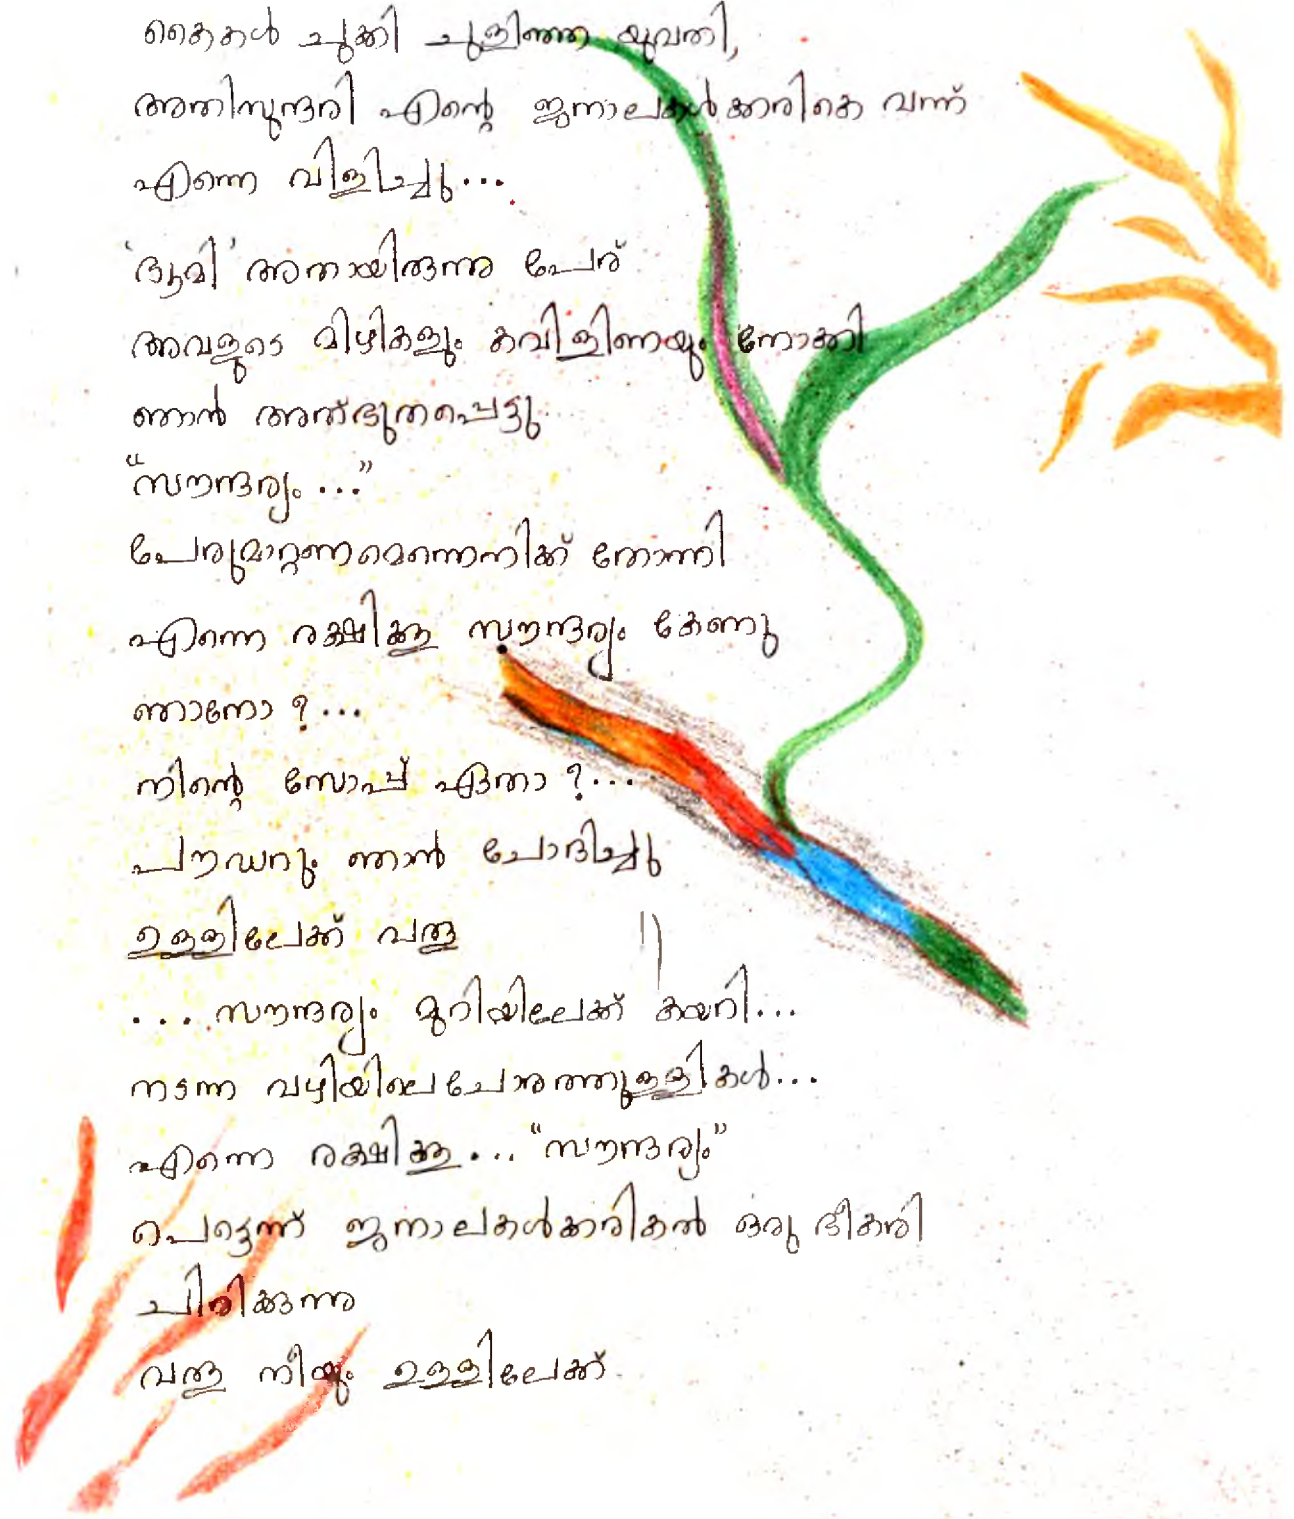 കൈകൾ ചുക്കി ചുളിഞ്ഞ യുവതി,
അതിസുന്ദരി എന്റെ ജനാലകൾക്കരികെ വന്ന്
എന്നെ വിളിച്ചു...
'ഭൂമി' അതായിരുന്നു പേര്
അവളുടെ മിഴികളും കവിളിണയും നോക്കി
ഞാൻ അത്ഭുതപ്പെട്ടു
"സൗന്ദര്യം..."
പേരുമാറ്റണമെന്നെനിക്ക് തോന്നി
എന്നെ രക്ഷിക്കൂ സൗന്ദര്യം കേണു
ഞാനോ?...
നിന്റെ സോപ്പ് ഏതാ?...
പൗഡറും ഞാൻ ചോദിച്ചു
ഉള്ളിലേക്ക് വരൂ
....സൗന്ദര്യം മുറിയിലേക്ക് കയറി...
നടന്ന വഴിയിലെചോരത്തുള്ളികൾ...
എന്നെ രക്ഷിക്കൂ... "സൗന്ദര്യം"
പെട്ടെന്ന് ജനാലകൾക്കരികൽ ഒരു ഭീകരി
ചിരിക്കുന്നു
വരൂ നീയും ഉള്ളിലേക്ക്.